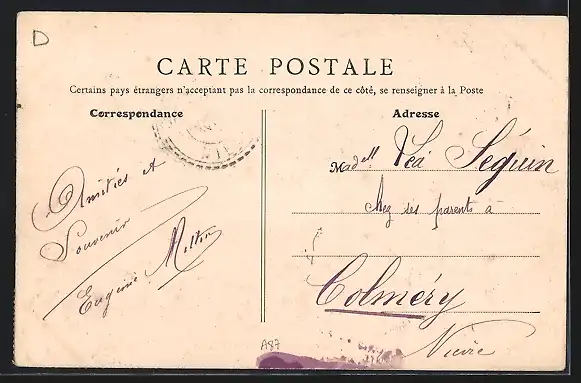 D
CARTE POSTALE
Certains pays étrangers n'acceptant pas la correspondance de ce côté, se renseigner à la Poste
Correspondance
Adresse
Amitiés et
Souvenir
Eugène
Madell. Léa Séguin
chez ses parents à
Colméry
Nièvre
A87